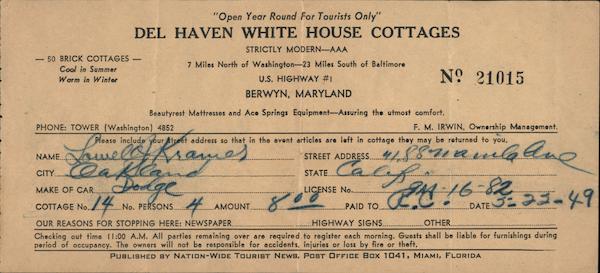 "Open Year Round For Tourists Only"
DEL HAVEN WHITE HOUSE COTTAGES
STRICTLY MODERN—AAA
— 50 BRICK COTTAGES —
Cool in Summer
Warm in Winter
7 Miles North of Washington—23 Miles South of Baltimore
U.S. HIGHWAY #1
BERWYN, MARYLAND
No 21015
Beautyrest Mattresses and Ace Springs Equipment—Assuring the utmost comfort.
PHONE: TOWER (Washington) 4852 F. M. IRWIN, Ownership Management.
Please include your street address so that in the event articles are left in cottage they may be returned to you.
NAME Lowell Kramer STREET ADDRESS 4188 Manila Ave
CITY Oakland STATE Calif.
MAKE OF CAR Dodge LICENSE No. 16-82
COTTAGE No. 14 No. PERSONS 4 AMOUNT 8.00 PAID TO DATE 5-23-49
OUR REASONS FOR STOPPING HERE: NEWSPAPER HIGHWAY SIGNS OTHER
Checking out time 11:00 A.M. All parties remaining over are required to register each morning. Guests shall be liable for furnishings during
period of occupancy. The owners will not be responsible for accidents, injuries or loss by fire or theft.
PUBLISHED BY NATION-WIDE TOURIST NEWS, POST OFFICE BOX 1041, MIAMI, FLORIDA